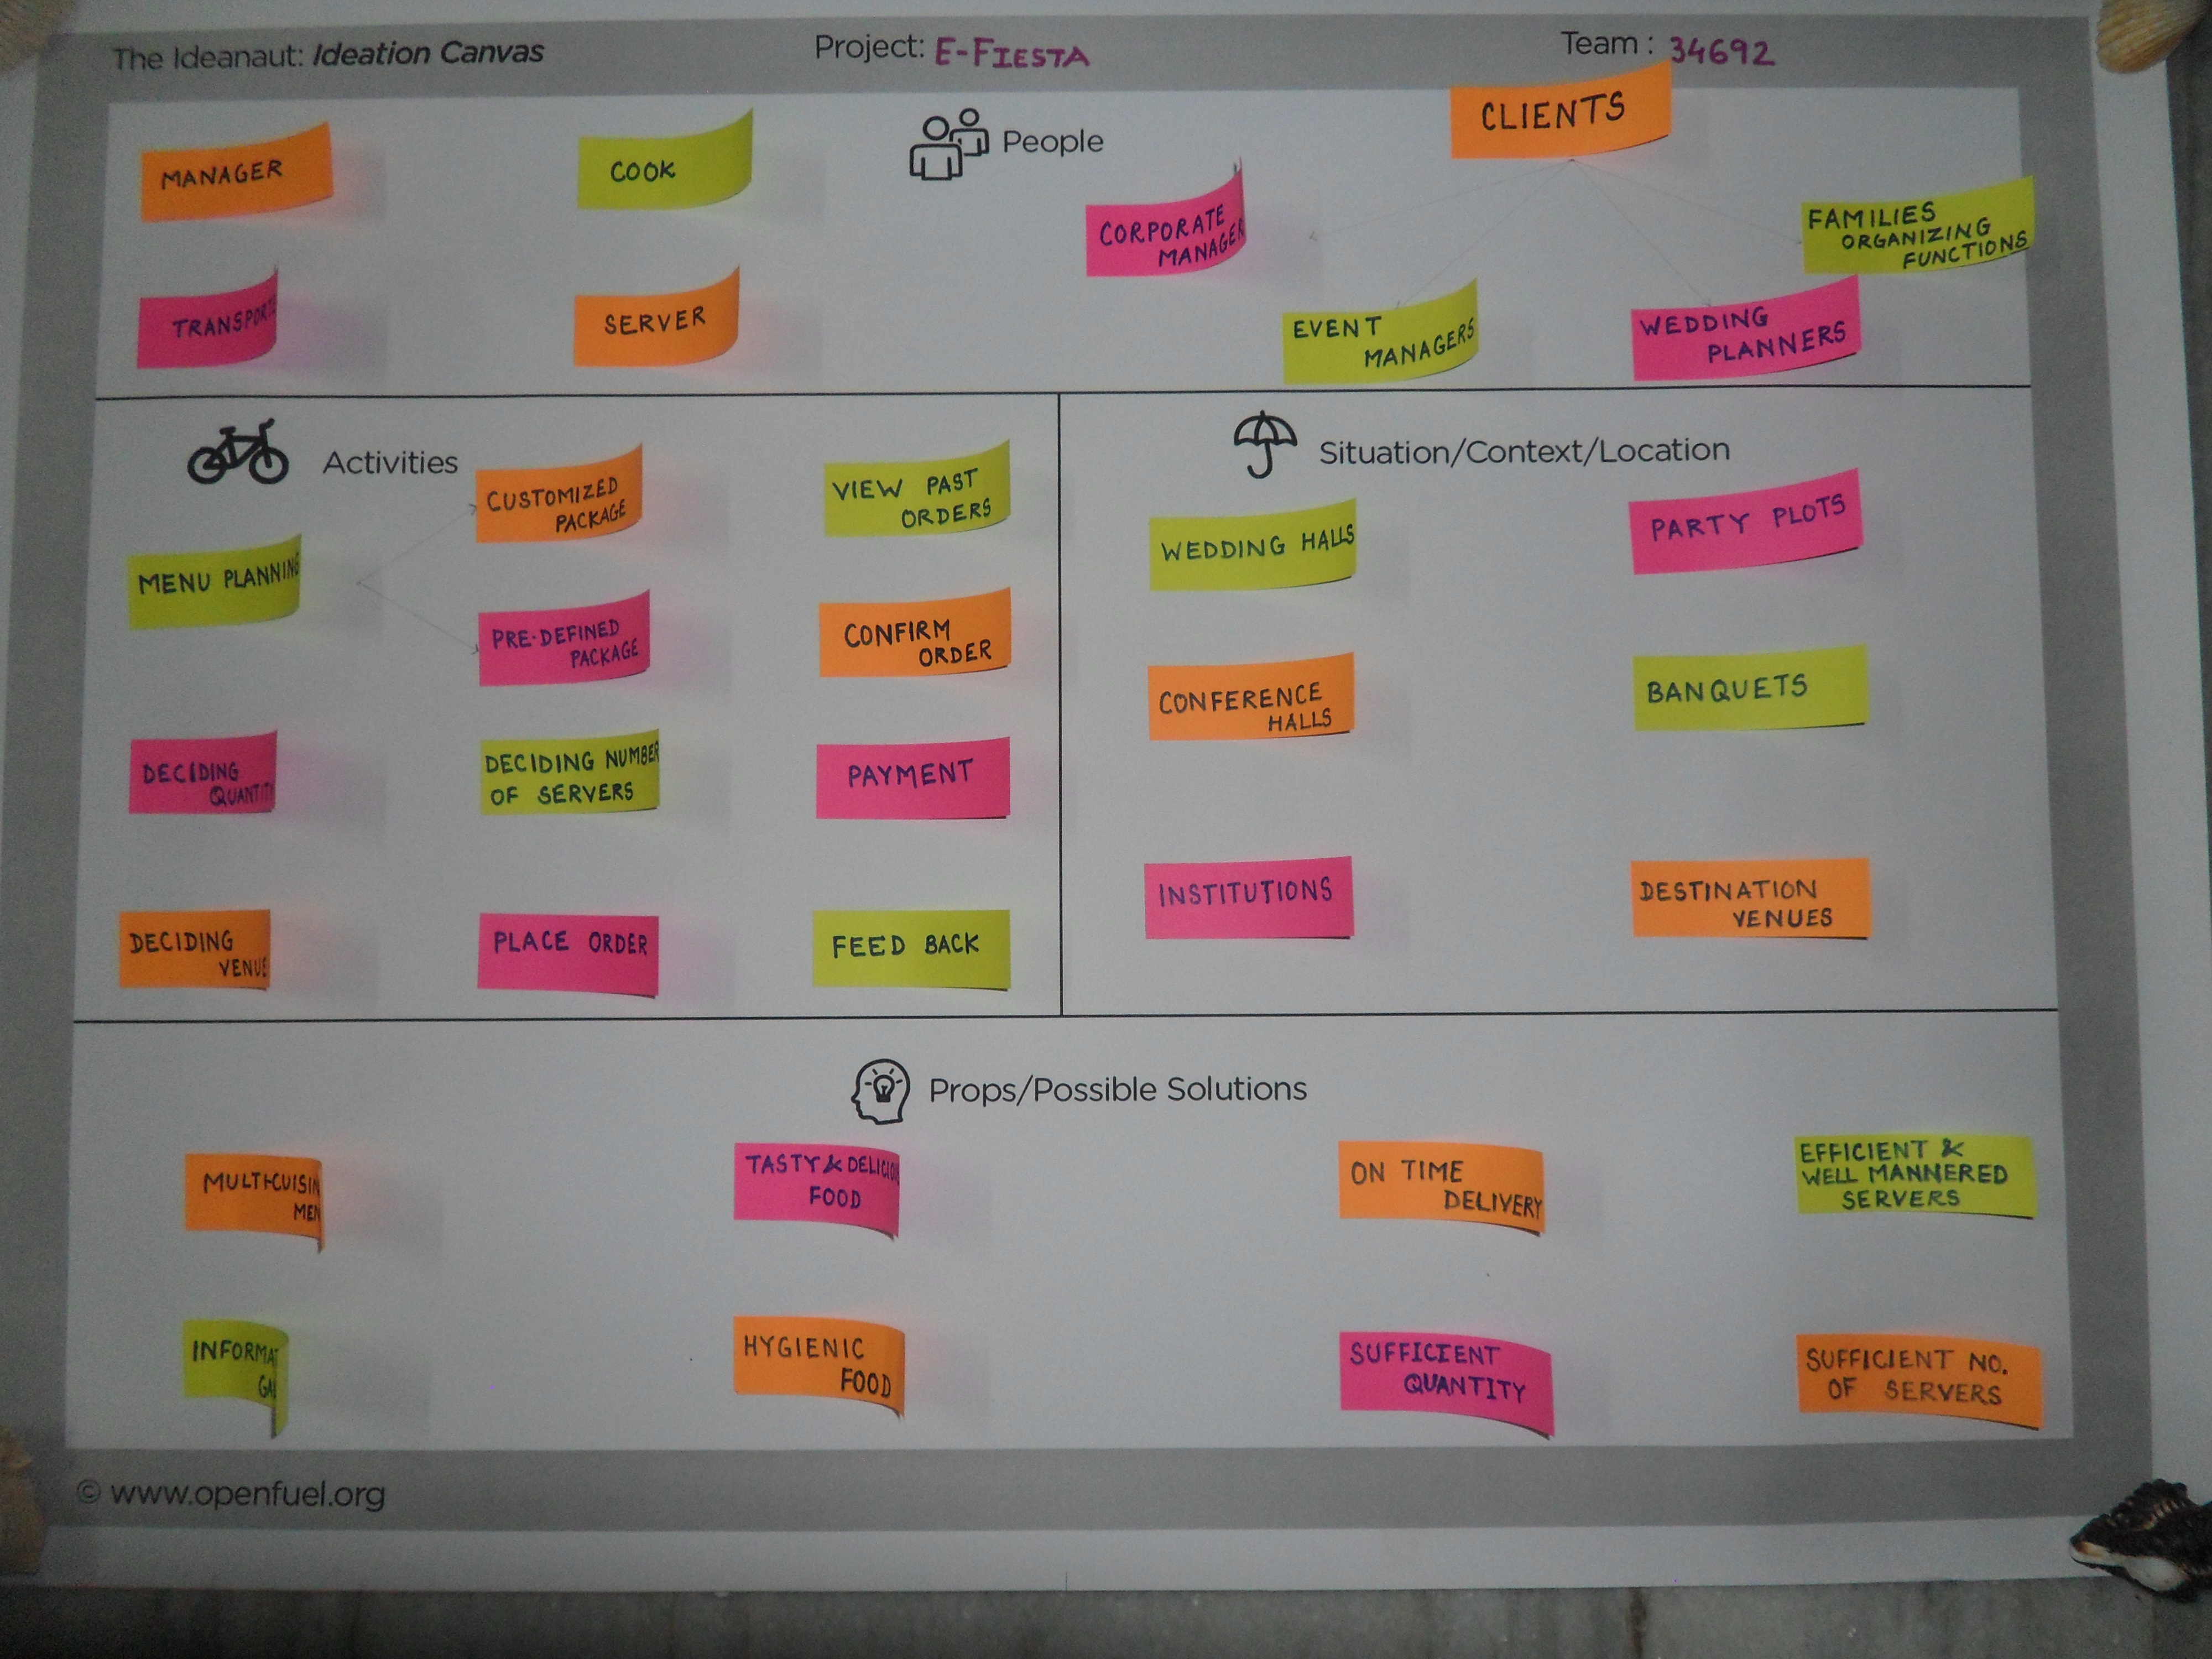 The Ideanaut: Ideation Canvas
Project: E-FIESTA
Team: 34692
People
MANAGER
COOK
CLIENTS
CORPORATE
MANAGER
FAMILIES
ORGANIZING
FUNCTIONS
SERVER
EVENT
MANAGERS
WEDDING
PLANNERS
Activities
CUSTOMIZED
PACKAGE
VIEW PAST
ORDERS
MENU PLANNING
PRE-DEFINED
PACKAGE
CONFIRM
ORDER
DECIDING
DECIDING NUMBER
OF SERVERS
PAYMENT
DECIDING
VENUE
PLACE ORDER
FEED BACK
Situation/Context/Location
WEDDING HALLS
PARTY PLOTS
CONFERENCE
HALLS
BANQUETS
INSTITUTIONS
DESTINATION
VENUES
Props/Possible Solutions
TASTY &
FOOD
ON TIME
DELIVERY
EFFICIENT &
WELL MANNERED
SERVERS
HYGIENIC
FOOD
SUFFICIENT
QUANTITY
SUFFICIENT NO.
OF SERVERS
© www.openfuel.org